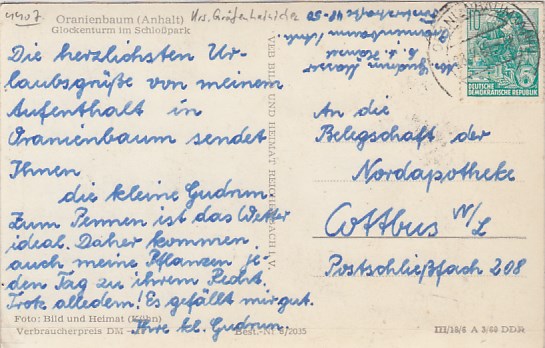 4407
Oranienbaum (Anhalt)
Glockenturm im Schloßpark
Die herzlichsten Ur-
laubsgrüße von meinem
Aufenthalt in
Oranienbaum sendet
Ihnen
die kleine Gudrun.
Zum Pennen ist das Wetter
ideal. Daher kommen
auch meine Pflanzen je-
den Tag zu ihrem Recht.
Trotz alledem! Es gefällt mir gut.
Ihre kl. Gudrun.
Foto: Bild und Heimat (Kühn)
Verbraucherpreis DM
Best.-Nr 8/2035
VEB BILD UND HEIMAT REICHENBACH i. V.
Gudrun
Oranienbaum
10
6
DEUTSCHE
DEMOKRATISCHE REPUBLIK
An die
Belegschaft der
Nordapotheke
Cottbus N/L
Postschließfach 208
III/18/6 A 3/60 DDR